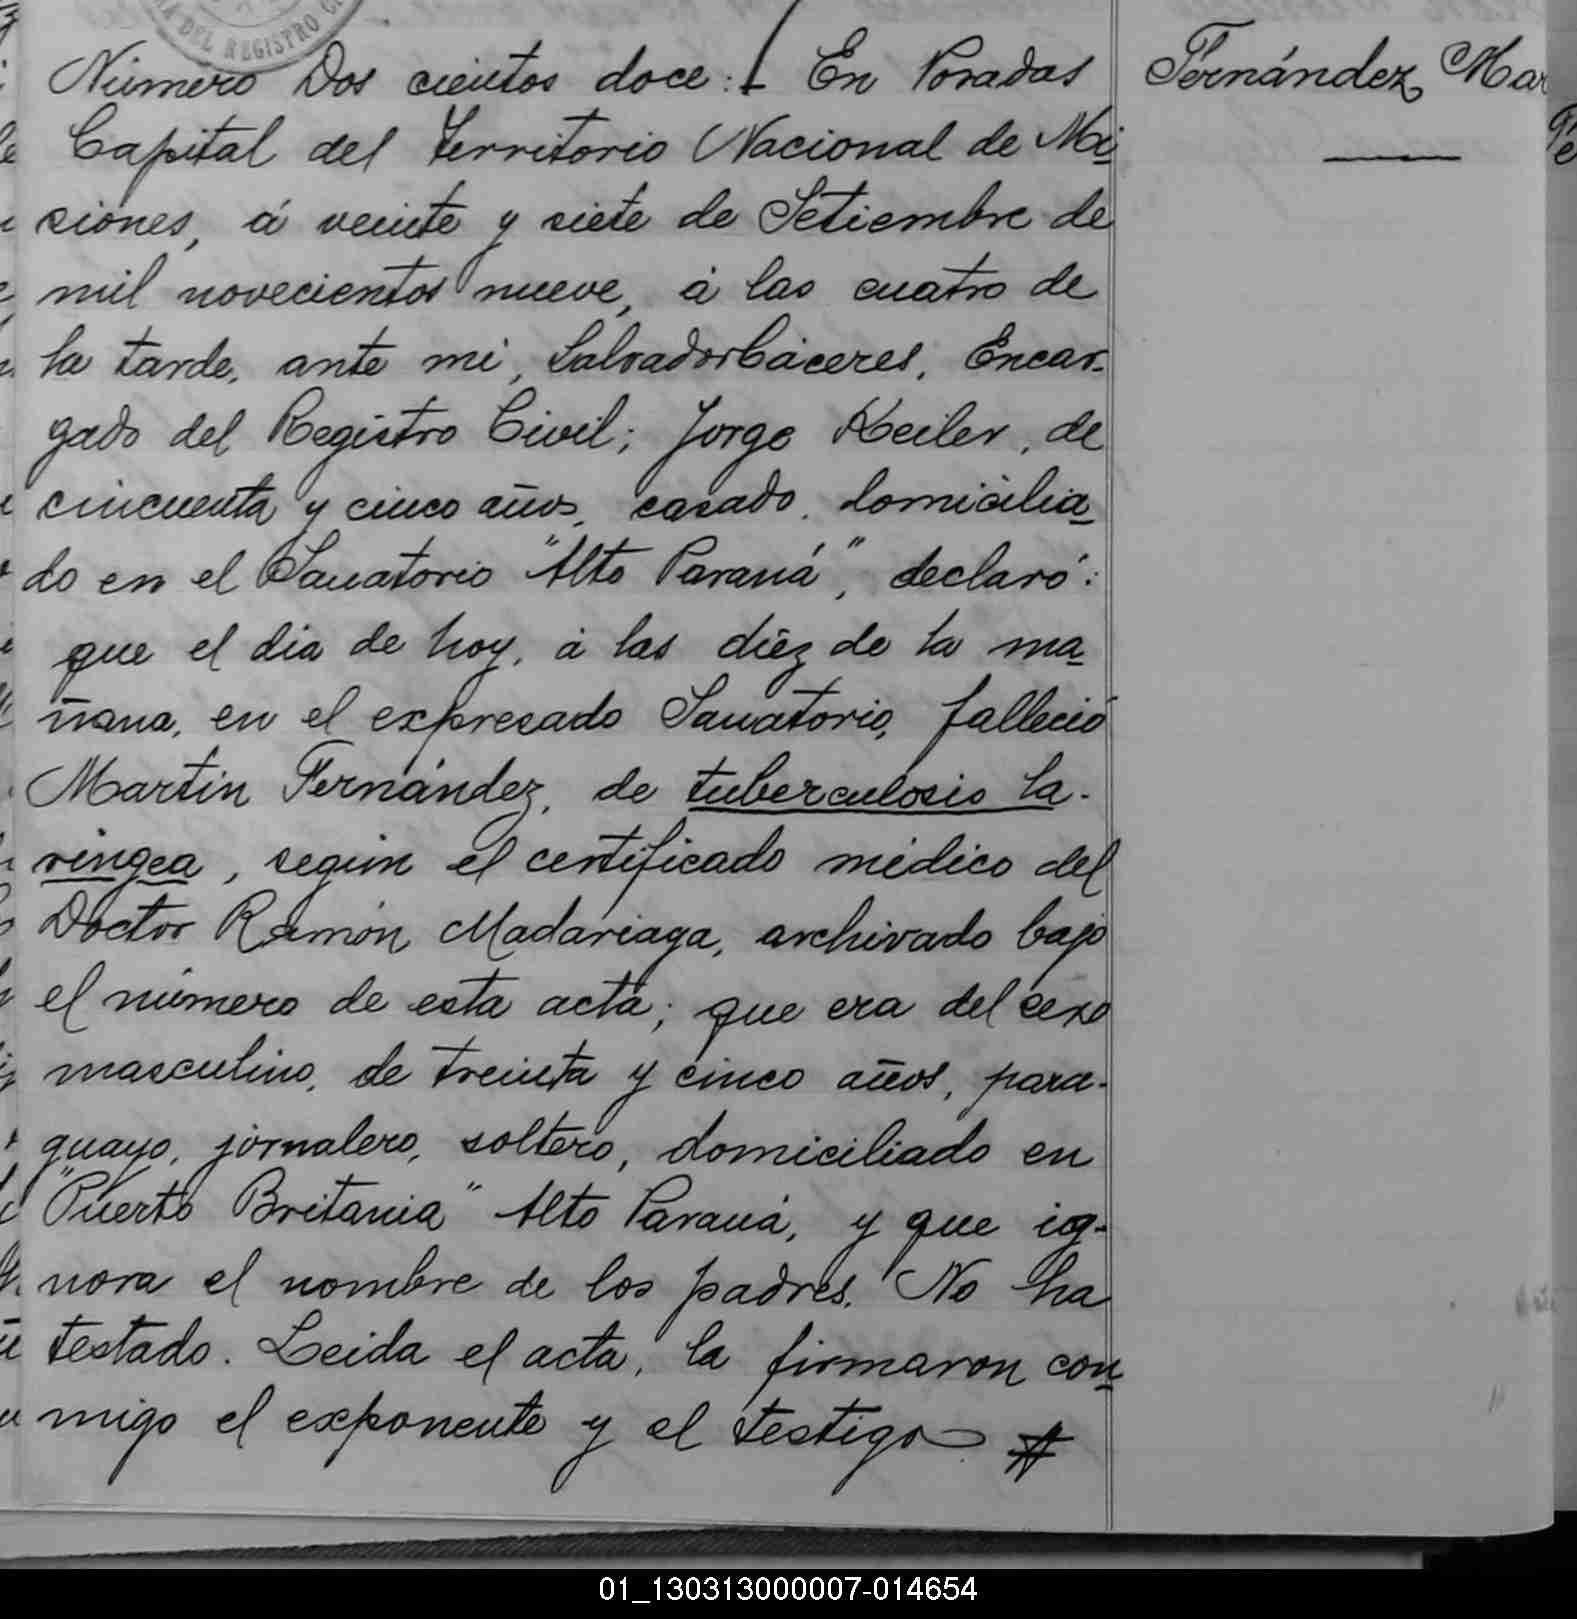 DEL REGISTRO
Número Dos cientos doce: En Posadas
Capital del Territorio Nacional de Mi
siones, á veinte y siete de Setiembre de
mil novecientos nueve, á las cuatro de
la tarde, ante mi, Salvador Cáceres, Encar-
gado del Registro Civil; Jorge Keiler, de
cincuenta y cinco años, casado, domicilia
do en el Sanatorio "Alto Paraná", declaró:
que el dia de hoy, á las diéz de la ma
ñana, en el expresado Sanatorio, falleció
Martin Fernández, de tuberculosis la-
ringea, según el certificado médico del
Doctor Ramón Madariaga, archivado bajo
el número de esta acta; que era del sexo
masculino, de treinta y cinco años, para-
guayo, jornalero, soltero, domiciliado en
"Puerto Britania" Alto Paraná, y que ig-
nora el nombre de los padres. No ha
testado. Leida el acta, la firmaron con
migo el exponente y el testigo
Fernández Mar
01_130313000007-014654